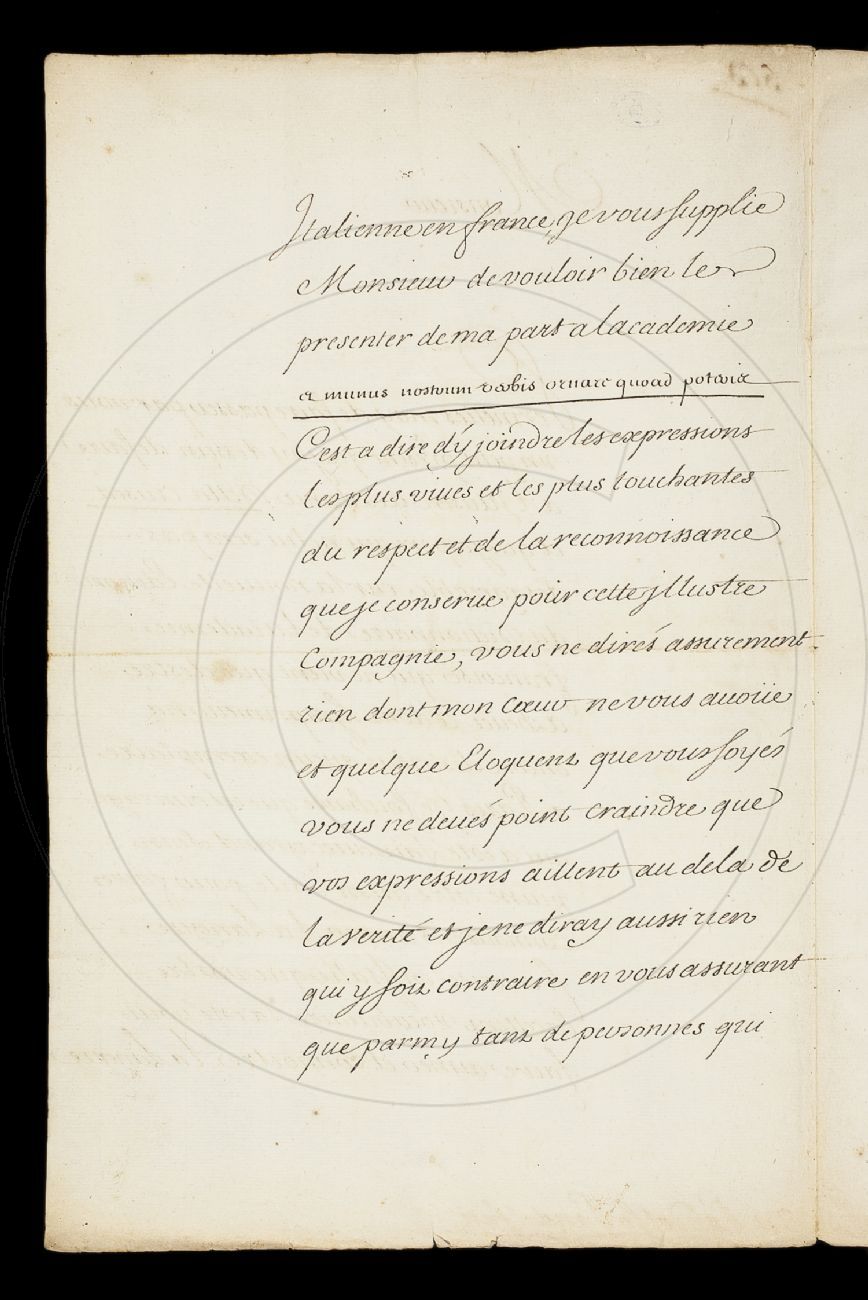 Italienne en france, je vous supplie
Monsieur de vouloir bien le
presenter de ma part a lacademie
et munus nostrum verbis ornare quoad poteris
Cest a dire dy joindre les expressions
les plus viues et les plus touchantes
du respect et de la reconnoissance
que je conserue pour cette jllustre
Compagnie, vous ne dirés assurement
rien dont mon Cœur ne vous auoüe
et quelque Eloquent que vous soyés
vous ne deués point craindre que
vos expressions aillent au dela de
la verité et je ne diray aussi rien
qui y soit contraire en vous assurant
que parmy tant de personnes qui